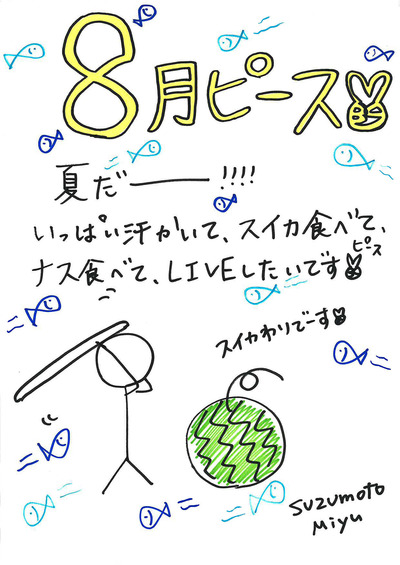 8月ピース
夏だー!!!!
いっぱい汗かいて、スイカ食べて、
ナス食べて、LIVEしたいです
ピース
スイカわりでーす
SUZUMOTO
Miyu